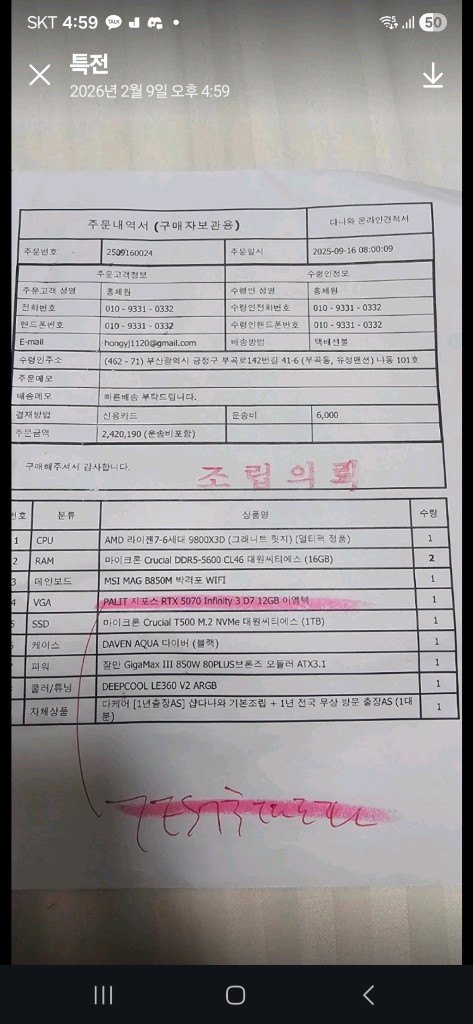 SKT 4:59 TALK 50
특전
2026년 2월 9일 오후 4:59
주문내역서 (구매자보관용) 다나와 온라인견적서
주문번호 2509160024 주문일시 2025-09-16 08:00:09
주문고객정보 수령인정보
주문고객 성명 홍체원 수령인 성명 홍체원
전화번호 010 - 9331 - 0332 수령인전화번호 010 - 9331 - 0332
핸드폰번호 010 - 9331 - 0332 수령인핸드폰번호 010 - 9331 - 0332
E-mail hongyj1120@gmail.com 배송방법 택배선불
수령인주소 (462 - 71) 부산광역시 금정구 부곡로142번길 41-6 (부곡동, 유정맨션) 나동 101호
주문메모
배송메모 빠른배송 부탁드립니다.
결제방법 신용카드 운송비 6,000
주문금액 2,420,190 (운송비포함)
구매해주셔서 감사합니다.
조립의뢰
번호 분류 상품명 수량
1 CPU AMD 라이젠7-6세대 9800X3D (그래니트 릿지) (멀티팩 정품) 1
2 RAM 마이크론 Crucial DDR5-5600 CL46 대원씨티에스 (16GB) 2
3 메인보드 MSI MAG B850M 박격포 WIFI 1
4 VGA PALIT 지포스 RTX 5070 Infinity 3 D7 12GB 이엠텍 1
SSD 마이크론 Crucial T500 M.2 NVMe 대원씨티에스 (1TB) 1
케이스 DAVEN AQUA 다이버 (블랙) 1
파워 잘만 GigaMax III 850W 80PLUS브론즈 모듈러 ATX3.1 1
쿨러/튜닝 DEEPCOOL LE360 V2 ARGB 1
자체상품 다케어 [1년출장AS] 샵다나와 기본조립 + 1년 전국 무상 방문 출장AS (1대분) 1